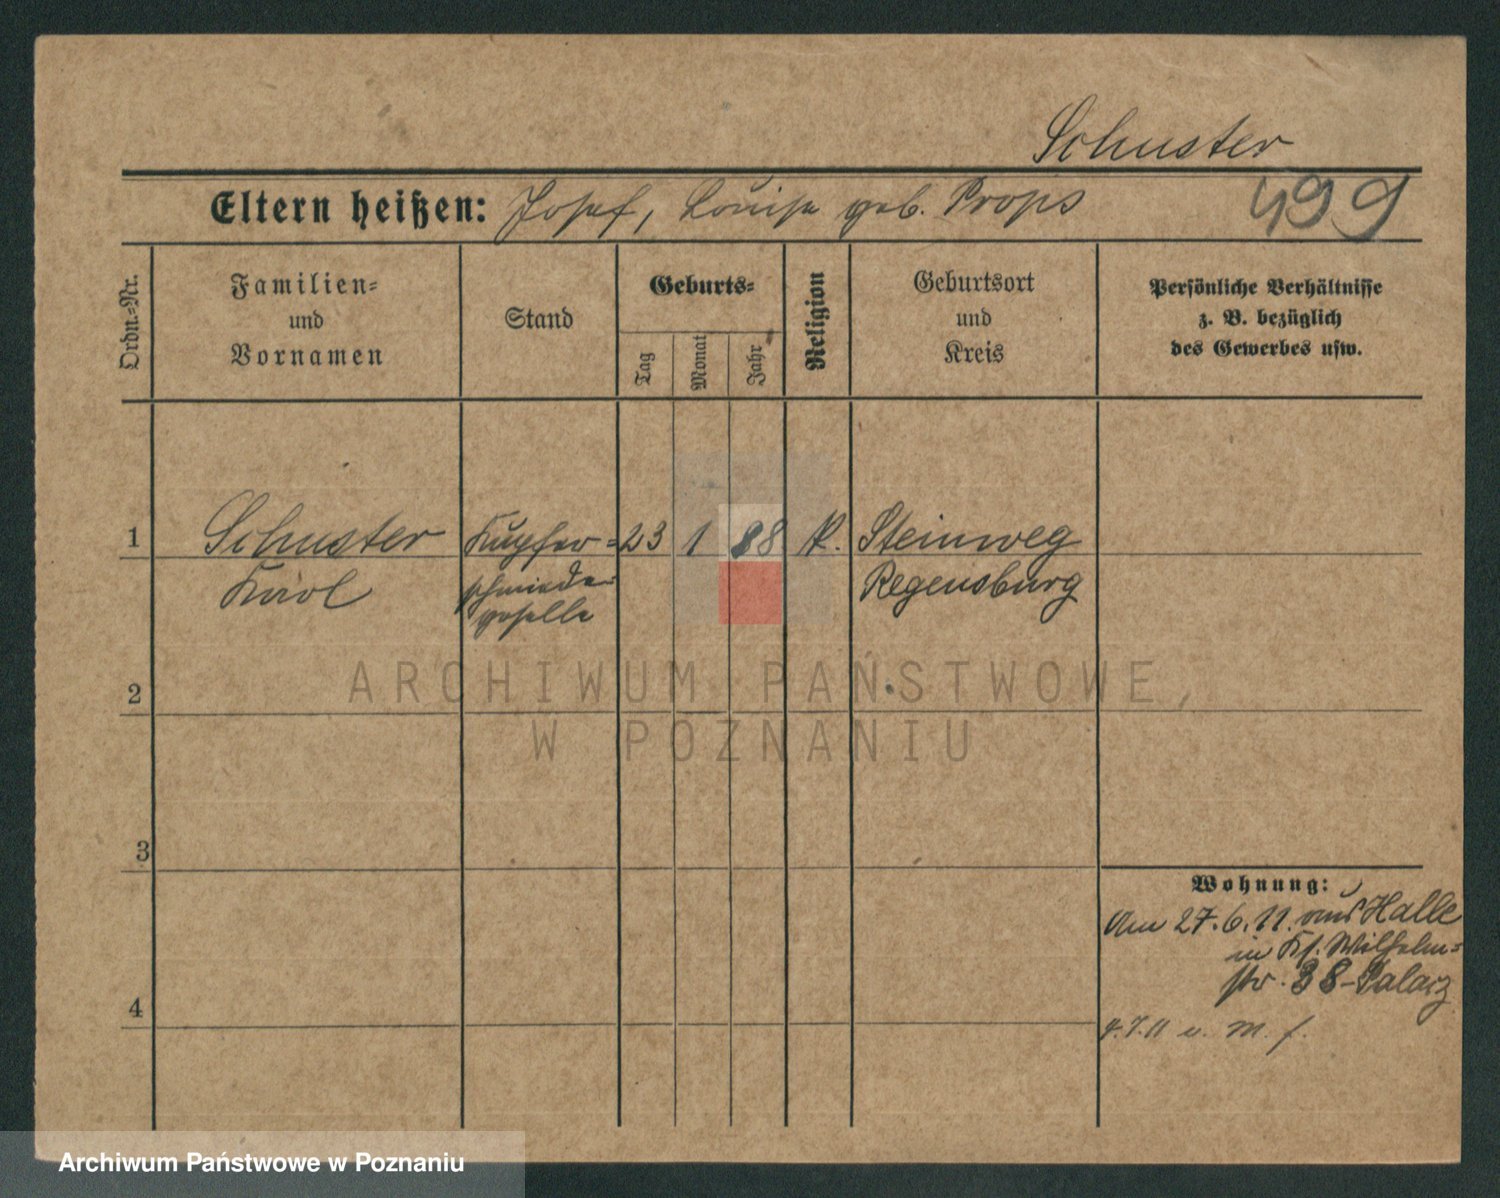 Schuster
Eltern heißen: Josef, Louise geb. Props
499
Ordn.-Nr.
Familien- und Vornamen
Stand
Geburts-
Tag
Monat
Jahr
Religion
Geburtsort und Kreis
Persönliche Verhältnisse
z. B. bezüglich
des Gewerbes usw.
1 Schuster Kupfer- 23 1 88 k. Steinweg
Karol schmiede- Regensburg
geselle
ARCHIWUM PAŃSTWOWE
2
W POZNANIU
3
Wohnung:
Am 27.6.11. aus Halle
in Ks. Wilhelm-
str. 38-Palacz
4
u. M. f.
Archiwum Państwowe w Poznaniu